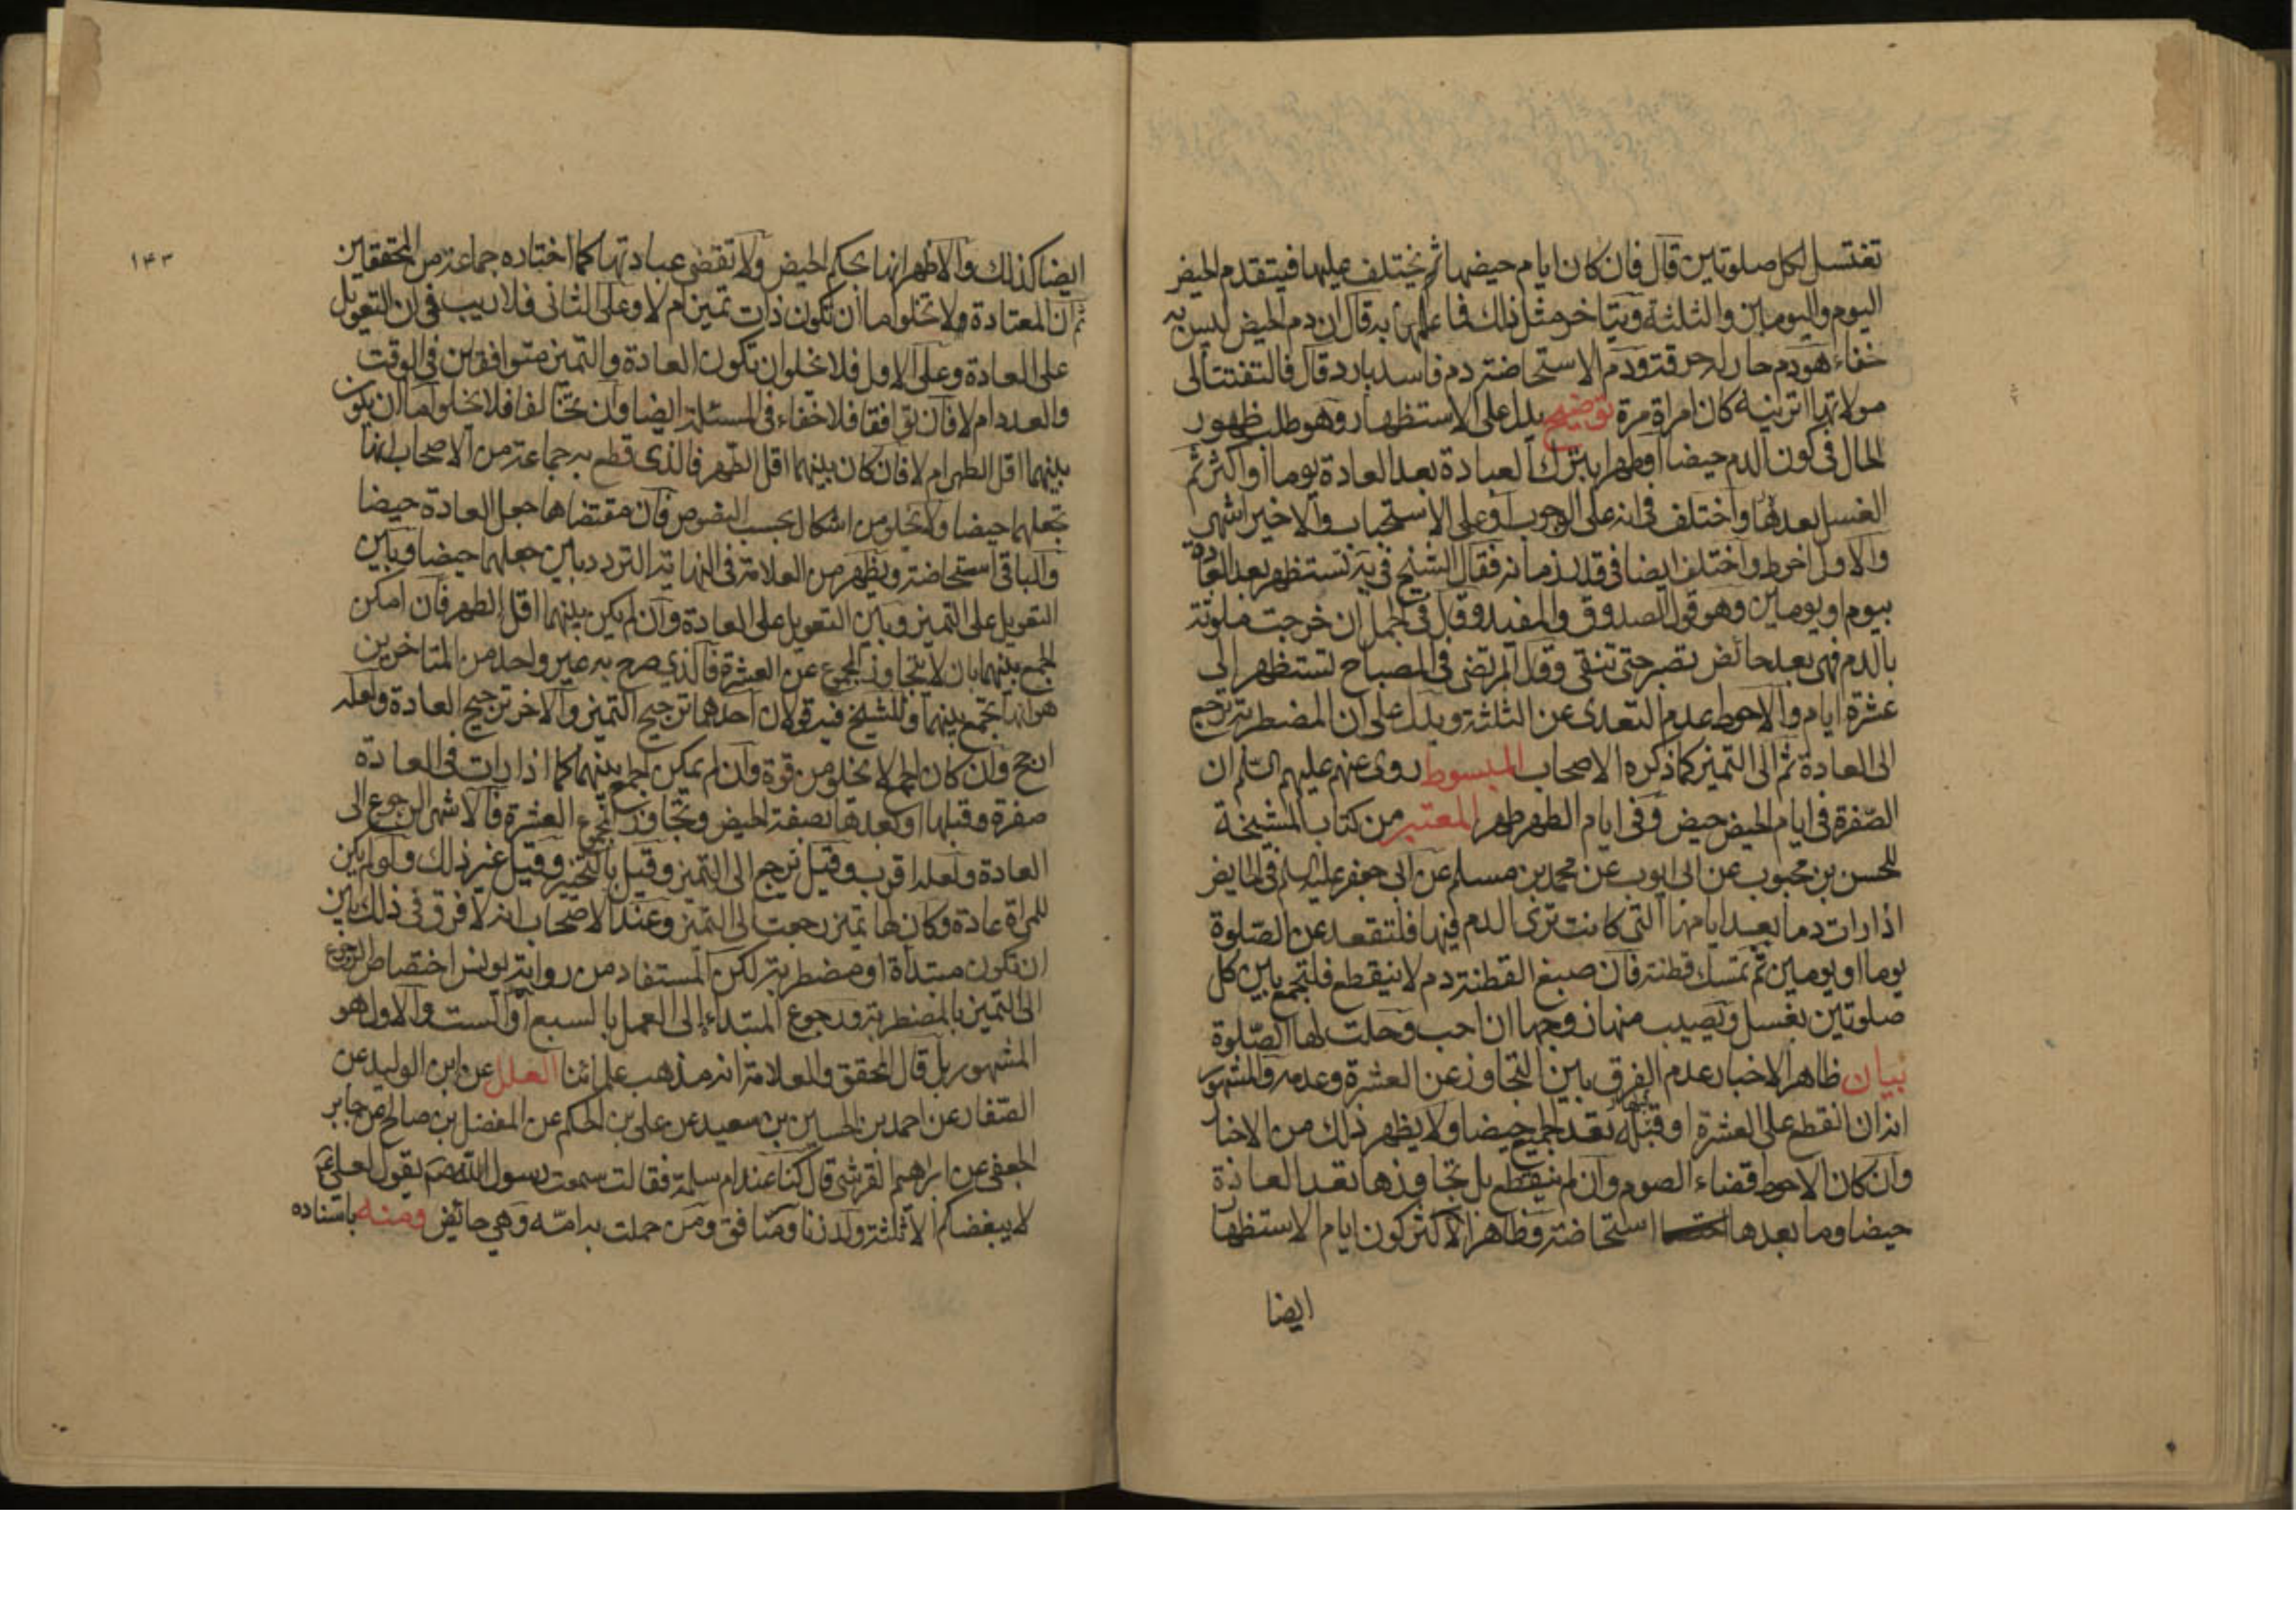 تغتسل لكل صلوتين قال فان كان ايام حيضها ثم يختلف عليها فيتقدم الحيض
اليوم واليومين والثلثة ويتاخر مثل ذلك فما علمها به قال ان دم الحيض ليس به
خفاء هو دم حار له حرقة ودم الاستحاضة دم فاسد بارد قال فالتفتت الى
مولاتها اترينه كان امراة مرة توضيح يدل على الاستظهار وهو طلب ظهور
الحال في كون الدم حيضا او طهرا بترك العبادة بعد العادة يوما او اكثر ثم
الغسل بعدها واختلف في انه على الوجوب او على الاستحباب والاخير اشهر
والاول احوط واختلف ايضا في قدر زمانه فقال الشيخ في يه تستظهر بعد العادة
بيوم او يومين وهو قول الصدوق والمفيد وقال في الجمل ان خرجت ملوثة
بالدم فهي بعد حائض تصبر حتى تنقى وقال المرتضى في المصباح تستظهر الى
عشرة ايام والاحوط عدم التعدى عن الثلثة ويدل على ان المضطربة ترجع
الى العادة ثم الى التميز كما ذكره الاصحاب المبسوط روى عنهم عليهم السلم ان
الصفرة في ايام الحيض حيض وفى ايام الطهر طهر المعتبر من كتاب المشيخة
للحسن بن محبوب عن ابى ايوب عن محمد بن مسلم عن ابى جعفر عليه السلم في الحايض
اذا رات دما بعد ايامها التى كانت ترى الدم فيها فلتقعد عن الصلوة
يوما او يومين ثم تمسك قطنة فان صبغ القطنة دم لا ينقطع فلتجمع بين كل
صلوتين بغسل ويصيب منها زوجها ان احب وحلت لها الصلوة
بيان ظاهر الاخبار عدم الفرق بين التجاوز عن العشرة وعدمه والمشهور
انه ان انقطع على العشرة او قبله تعد الجميع حيضا ولا يظهر ذلك من الاخبا
وان كان الاحوط قضاء الصوم وان لم ينقطع بل تجاوزها تعد العادة
حيضا وما بعدها استحاضة وظاهر الاكثر كون ايام الاستظها
ايضا
١٤٣
ايضا كذلك والاظهر انها بحكم الحيض ولا تقضى عبادتها كما اختاره جماعة من المحققين
ثم ان المعتادة لا تخلو اما ان تكون ذات تميز ام لا وعلى الثانى فلا ريب في ان التعويل
على العادة وعلى الاول فلا يخلو ان تكون العادة والتميز متوافقين في الوقت
والعدد ام لا فان توافقا فلا خفاء في المسئلة ايضا وان تخالفا فلا يخلو اما ان يكون
بينهما اقل الطهر ام لا فان كان بينهما اقل الطهر فالذى قطع به جماعة من الاصحاب انها
تجعلهما حيضا ولا يخلو من اشكال بحسب النصوص فان مقتضاها جعل العادة حيضا
والباقى استحاضة ويظهر من العلامة في النهاية التردد بين جعلهما حيضا وبين
التعويل على التميز وبين التعويل على العادة وان لم يكن بينهما اقل الطهر فان امكن
الجمع بينهما بان لا يتجاوز المجموع عن العشرة فالذى صرح به غير واحد من المتاخرين
هو انها تجمع بينهما وللشيخ فيه قولان احدهما ترجيح التميز والاخر ترجيح العادة ولعله
ارجح وان كان الجمع لا يخلو من قوة وان لم يمكن الجمع بينهما كما اذا رات في العادة
صفرة وقبلها او بعدها بصفة الحيض وتجاوز المجموع العشرة فالاشهر الرجوع الى
العادة ولعله اقرب وقيل ترجع الى التميز وقيل بالتخيير وقيل غير ذلك ولو لم يكن
للمراة عادة وكان لها تميز رجعت الى التميز وعند الاصحاب انه لا فرق في ذلك بين
ان تكون مبتدأة او مضطربة لكن المستفاد من رواية يونس اختصاص الرجوع
الى التميز بالمضطربة ورجوع المبتداءة الى العمل بالسبع او الست والاول هو
المشهور بل قال المحقق والعلامة انه مذهب علمائنا العلل عن ابن الوليد عن
الصفار عن احمد بن الحسين بن سعيد عن على بن الحكم عن المفضل بن صالح عن جابر
الجعفى عن ابراهيم القرشى قال كنا عند ام سلمة فقالت سمعت رسول الله ص يقول لعلى ع
لا يبغضكم الا ثلثة ولد زنا ومنافق ومن حملت به امه وهي حائض ومنه باسناده